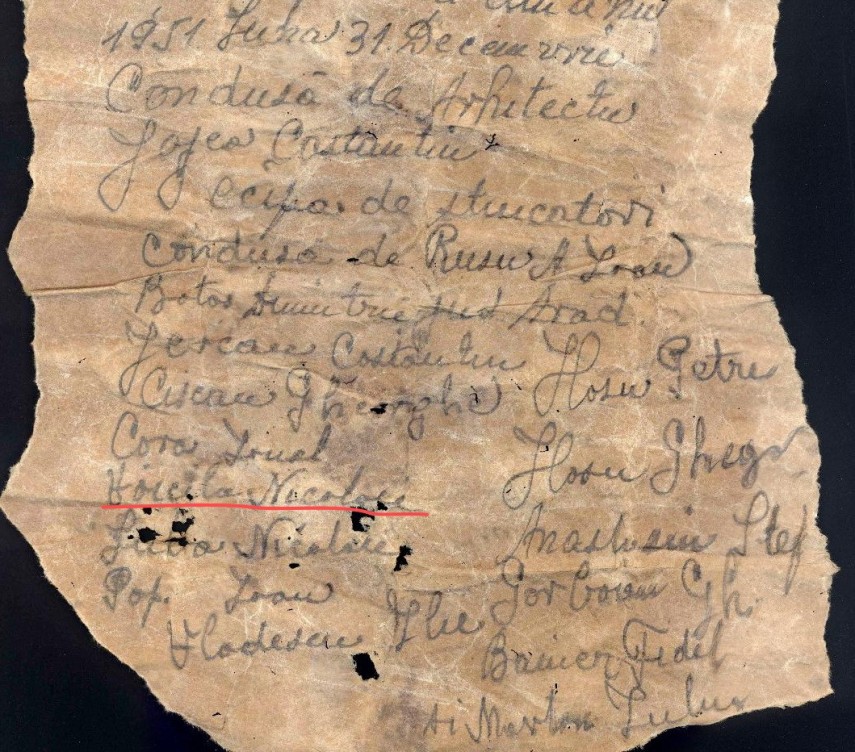 1951 Luna 31 Decemvrie
Condusă de Arhitectu
Jojea Costantin
ecipa de stucatori
Condusă de Rusu A Ioan
Botos Dumitrie jud Arad
Jercan Costantin Hosu Petru
Ciscau Gheorghe
Cora Hosu Gheg
Nicolaie
Nicolaie Anastasiu Stef
Pop. Ioan Gorboan Gh.
Vladescu Ilie
Bainer Fidel
si Marton Iuliu